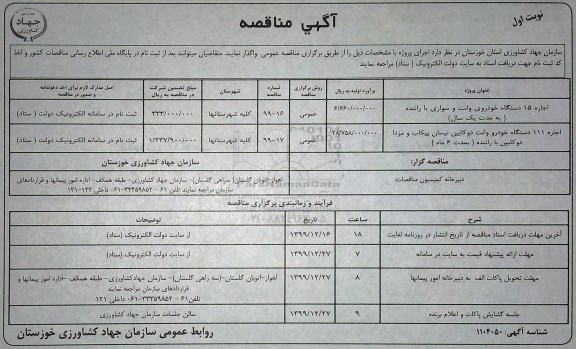 نوبت اول
آگهي مناقصه
جهاد کشاورزی
سازمان جهاد کشاورزی استان خوزستان در نظر دارد اجرای پروژه با مشخصات ذیل را از طریق برگزاری مناقصه عمومی واگذار نمایند. متقاضیان میتوانند بعد از ثبت نام در پایگاه ملی اطلاع رسانی مناقصات کشور و اخذ
کد ثبت نام جهت دریافت اسناد به سایت دولت الکترونیک ( ستاد) مراجعه نمایند
عنوان پروژه | برآورد اولیه به ریال | روش برگزاری مناقصه | شماره مناقصه | شهرستان | مبلغ تضمین شرکت در مناقصه به ریال | اصل مدارک لازم برای اخذ دعوتنامه و حضور در مناقصه
اجاره ۱۵ دستگاه خودروی وانت و سواری با راننده ( به مدت یک سال) | ۶/۶۶۰/۰۰۰/۰۰۰ | عمومی | ۹۹-۱۶ | کلیه شهرستانها | ۳۳۳/۰۰۰/۰۰۰ | ثبت نام در سامانه الکترونیک دولت ( ستاد)
اجاره ۱۱۱ دستگاه خودرو وانت دوکابین نیسان پیکاب و مزدا دوکابین با راننده ( بمدت ۶ ماه ) | ۲۸/۷۵۸/۰۰۰/۰۰۰ | عمومی | ۹۹-۱۷ | کلیه شهرستانها | ۱/۴۳۷/۹۰۰/۰۰۰ | ثبت نام در سامانه الکترونیک دولت ( ستاد)
مناقصه گزار: | سازمان جهاد کشاورزی خوزستان
دبیرخانه کمیسیون مناقصات: | اهواز-اتوبان گلستان( سراهی گلستان)- سازمان جهادکشاورزی- طبقه همکف- اداره امور پیمانها و قراردادهای
سازمان مراجعه نمایند تلفن ۶۱-۳۳۳۵۹۸۵۲-۰۶۱ داخلی ۱۲۲-۱۲۱
فرآیند و زمانبندی برگزاری مناقصه
شرح | ساعت | تاریخ | توضیحات
آخرین مهلت دریافت اسناد مناقصه از تاریخ انتشار در روزنامه لغایت | ۱۸ | ۱۳۹۹/۱۲/۱۶ | از سایت دولت الکترونیک (ستاد)
مهلت ارائه پیشنهاد قیمت به سایت در سامانه | ۷ | ۱۳۹۹/۱۲/۲۷ | از سایت دولت الکترونیک (ستاد)
مهشت تحویل پاکات الف به دبیرخانه امور پیمانها | ۸ | ۱۳۹۹/۱۲/۲۷ | اهواز-اتوبان گلستان-(سه راهی گلستان)- سازمان جهادکشاورزی- طبقه همکف -اداره امور پیمانها و
قراردادهای سازمان مراجعه نمایند
تلفن ۶۱-۳۳۳۵۹۸۵۲-۰۶۱ داخلی ۱۲۱
جلسه گشایش پاکات و اعلام برنده | ۹ | ۱۳۹۹/۱۲/۲۷ | سالن جلسات سازمان جهاد کشاورزی
شناسه آگهی: ۱۱۰۴۰۵۰
روابط عمومی سازمان جهاد کشاورزی خوزستان